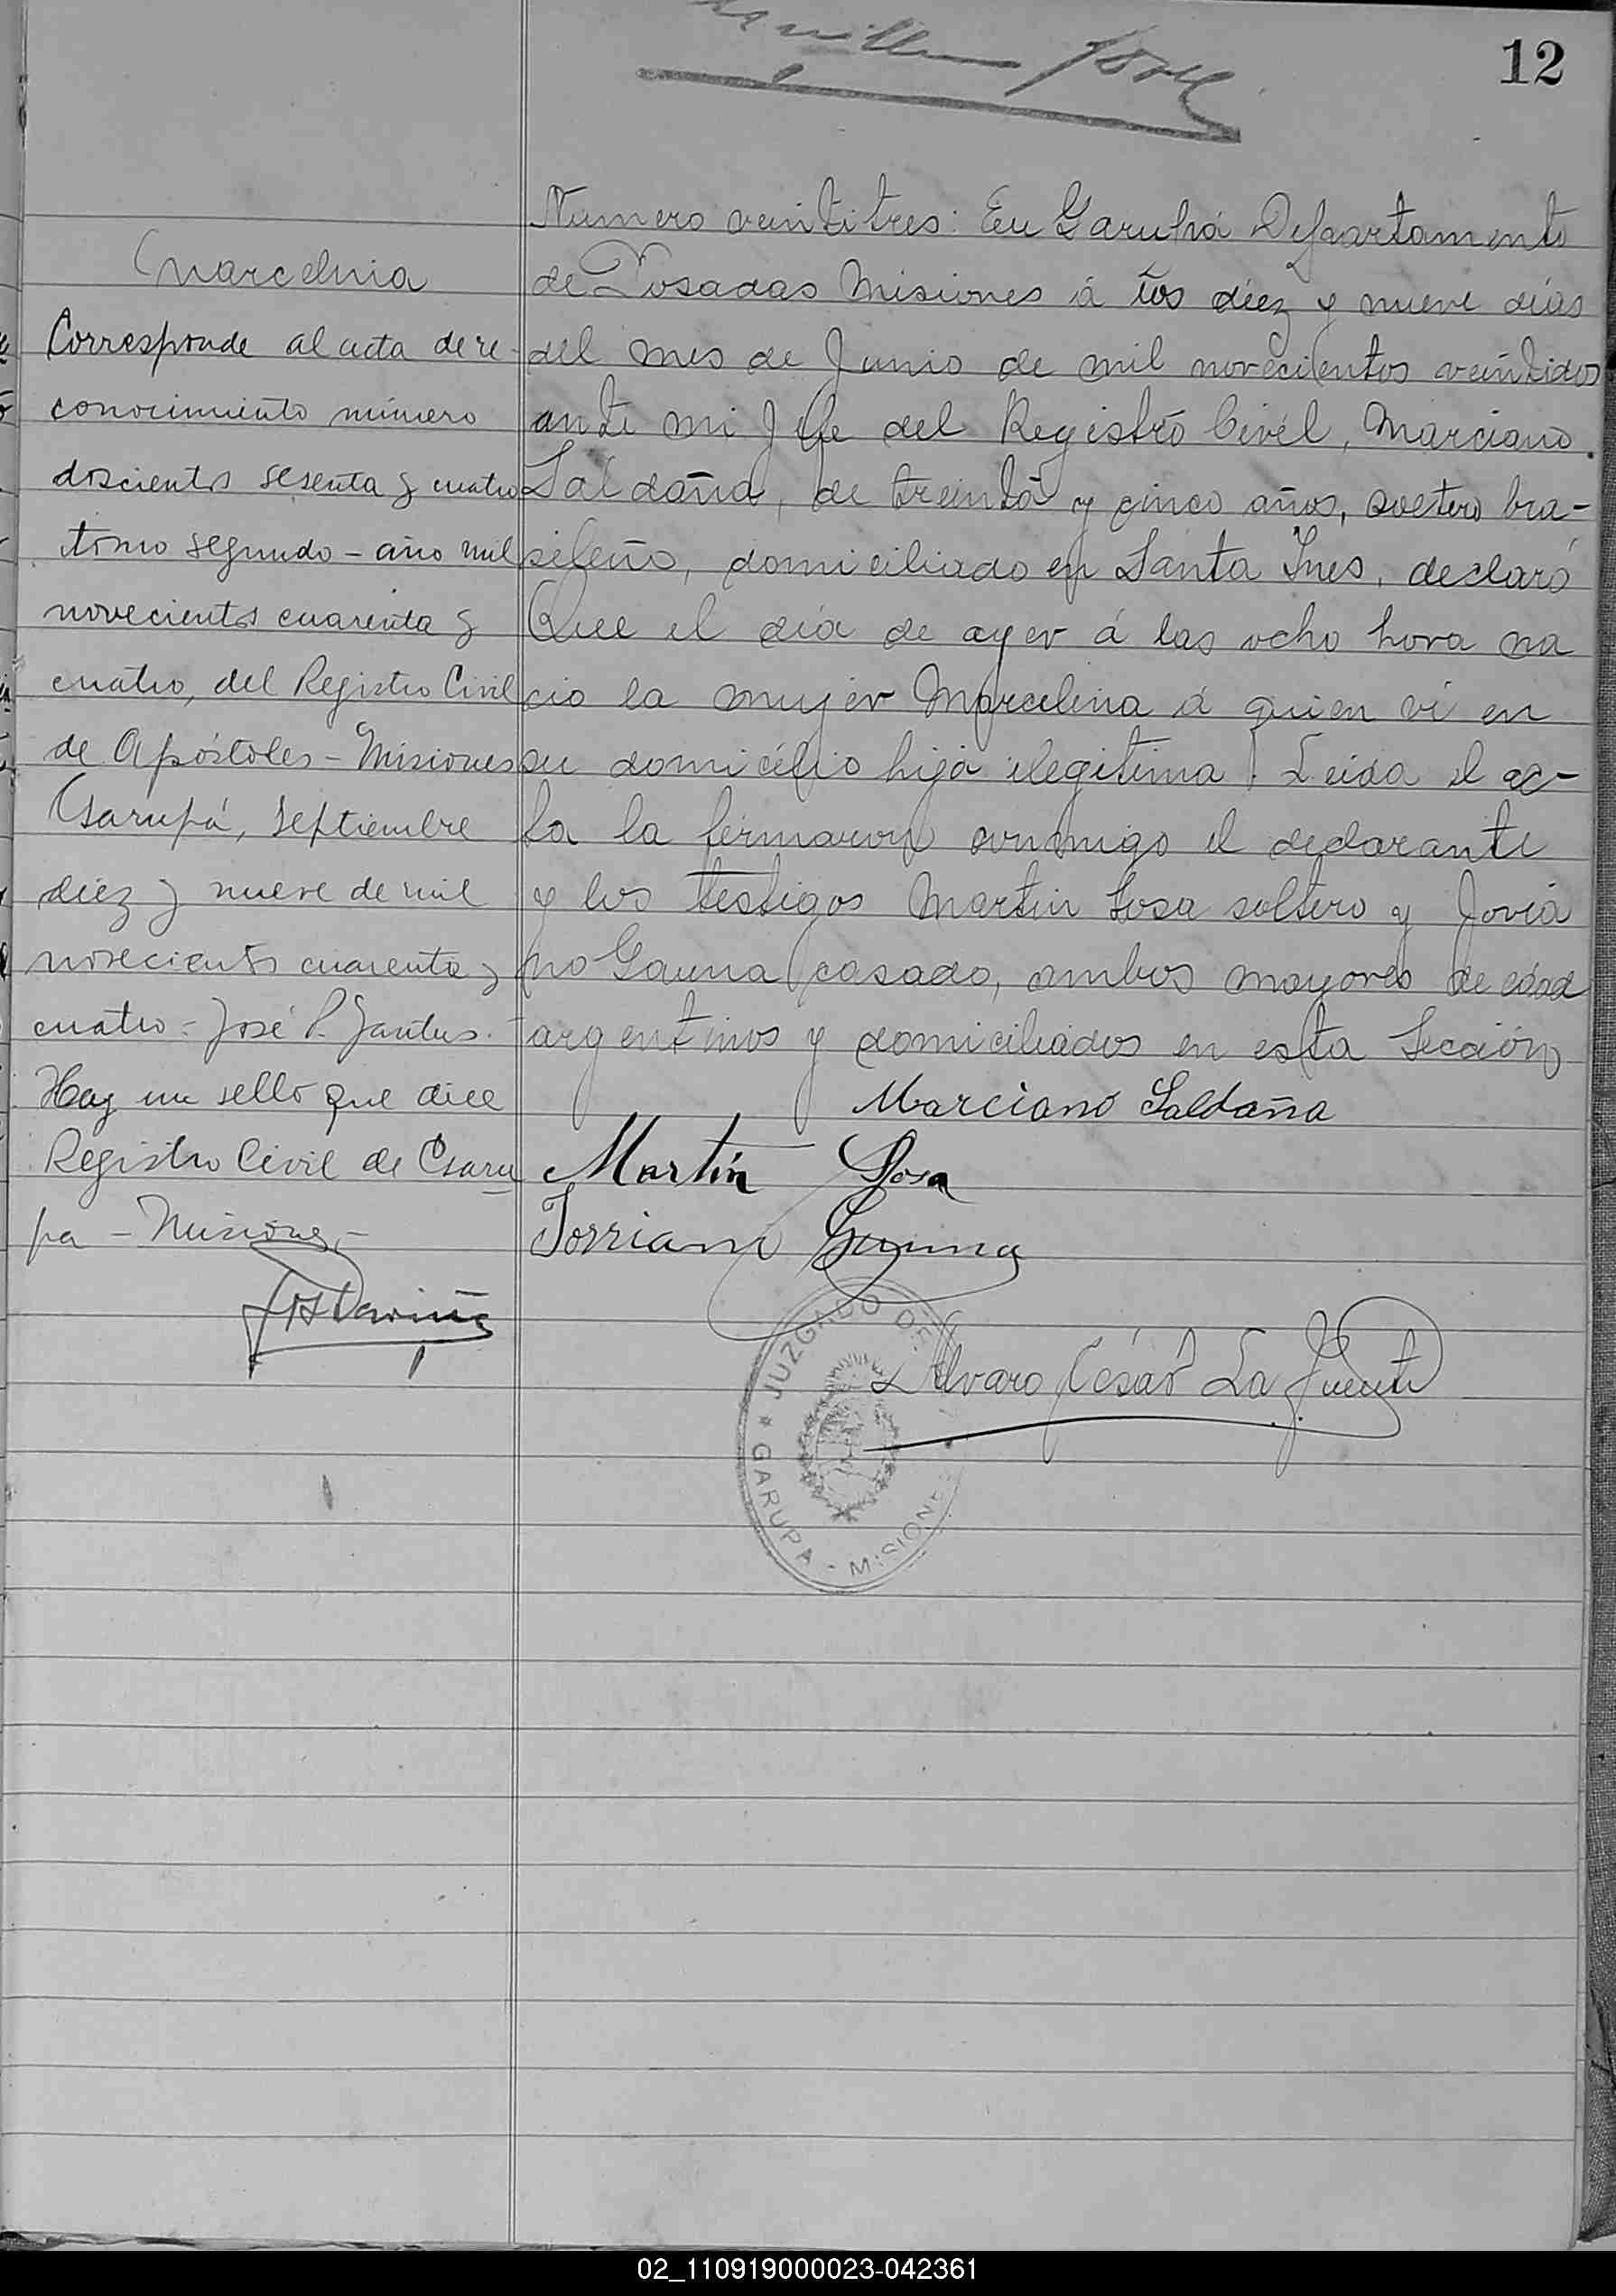 12
Numero veintitres: En Garupá Departamento
de Posadas Misiones á los diez y nueve dias
del mes de Junio de mil novecientos veintidos
ante mi Jefe del Registro Civil, Marciano
Saldaña, de treinta y cinco años, soltero bra-
sileño, domiciliado en Santa Ines, declaró
Que el día de ayer á las ocho hora na
cio la mujer Marcelina á quien vi en
su domicilio hija ilegitima. Leida el ac-
ta la firmaron conmigo el declarante
y los testigos Martin Sosa soltero y Jovia
no Gauna casado, ambos mayores de edad
argentinos y domiciliados en esta Sección
Marciano Saldaña
Martín Sosa
Jorriano Gauna
Alvaro César La Fuente
JUZGADO DE
GARUPA - MISIONE
Marcelina
Corresponde al acta de re-
conocimiento número
doscientos sesenta y cuatro
tomo segundo - año mil
novecientos cuarenta y
cuatro, del Registro Civil
de Apóstoles - Misiones
Garupá, Septiembre
diez y nueve de mil
novecientos cuarenta y
cuatro - José P.
Hay un sello que dice
Registro Civil de Garu
pa - Misiones -
02_110919000023-042361